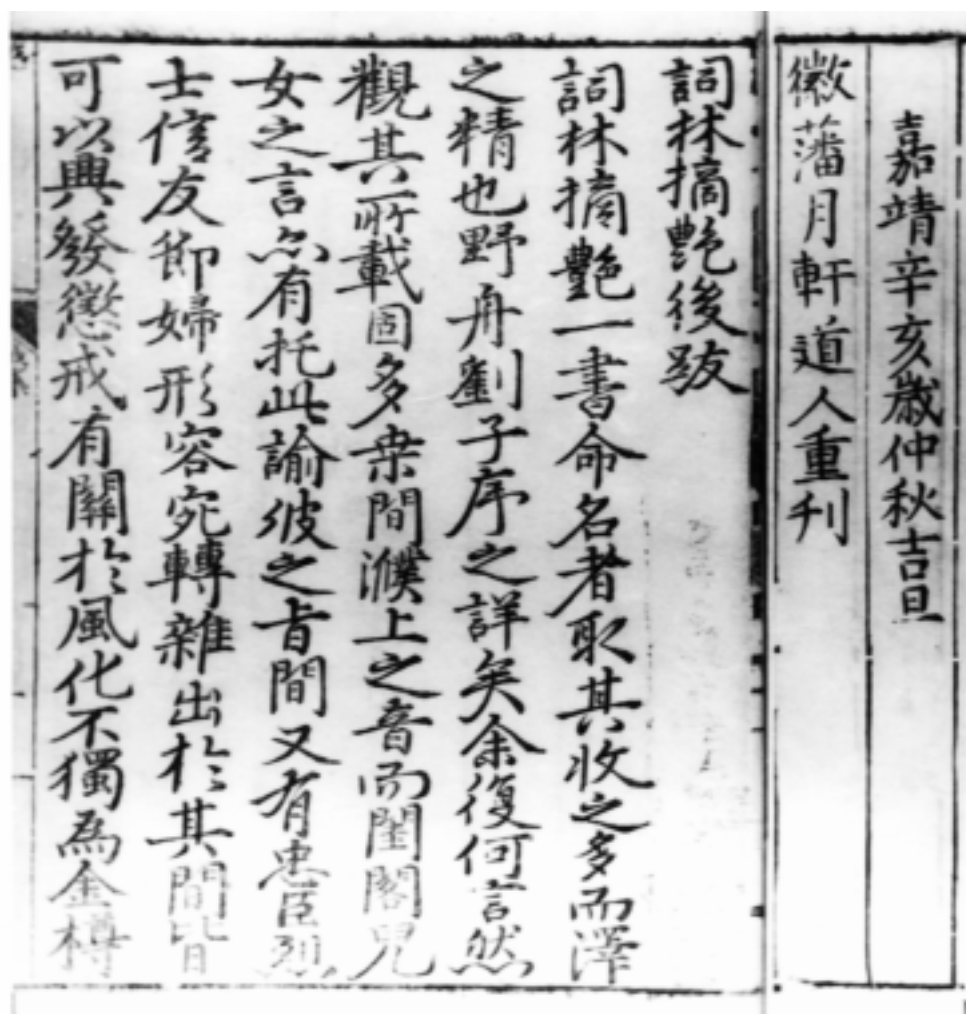 嘉靖辛亥歲仲秋吉旦
徽藩月軒道人重刋
詞林摘艷後跋
詞林摘艷一書命名者取其收之多而澤
之精也野舟劉子序之詳矣余復何言然
觀其所載固多桒間濮上之音而閨閣兒
女之言亦有托此諭彼之旨間又有忠臣烈
士信友節婦形容宛轉雜出於其間皆
可以興發懲戒有關於風化不獨為金樽